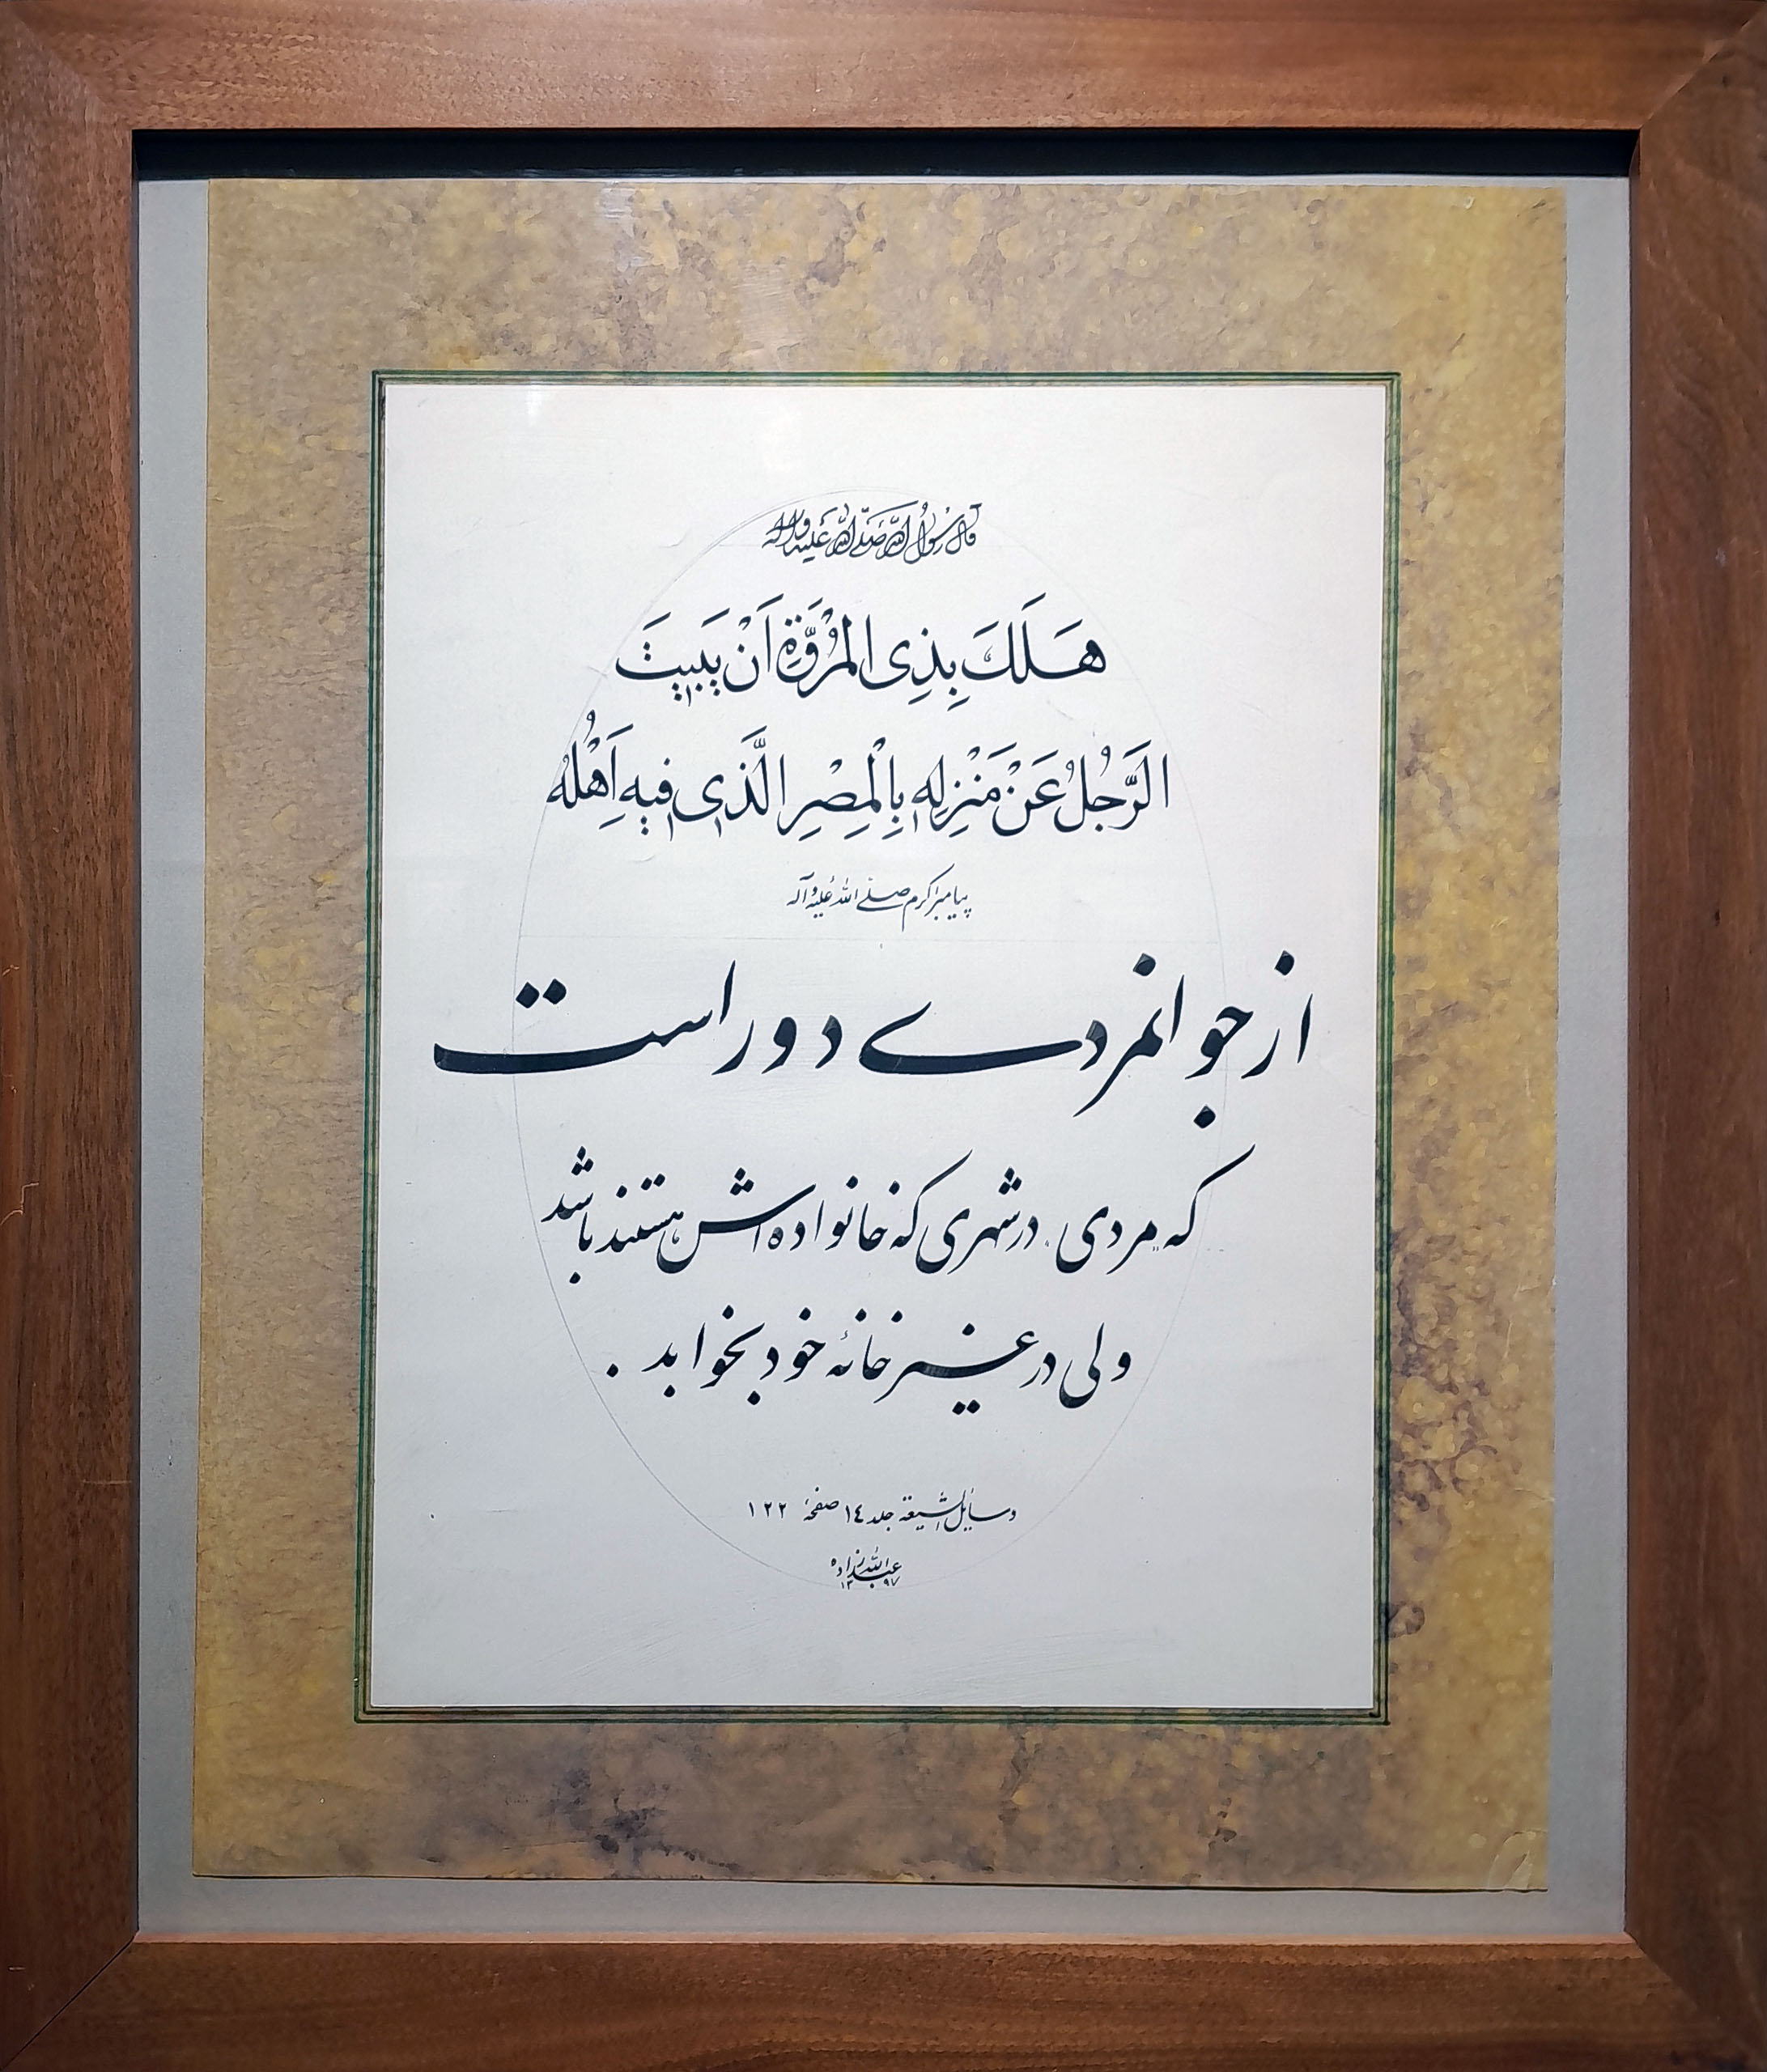 قال رسول الله صلی الله علیه و آله
هَلَكَ بِذِی المُرُوَّةِ اَنْ یَبیتَ
الرَّجُلُ عَنْ مَنْزِلِهِ بِالْمِصْرِ الَّذی فیهِ اَهْلُهُ
پیامبر اکرم صلی الله علیه و آله
از جوانمردی دور است
که مردی در شهری که خانواده اش هستند باشد
ولی در غیر خانهٔ خود بخوابد .
وسایل الشیعة جلد ١٤ صفحهٔ ١٢٢
عبدالله زاده
١٣٩٧